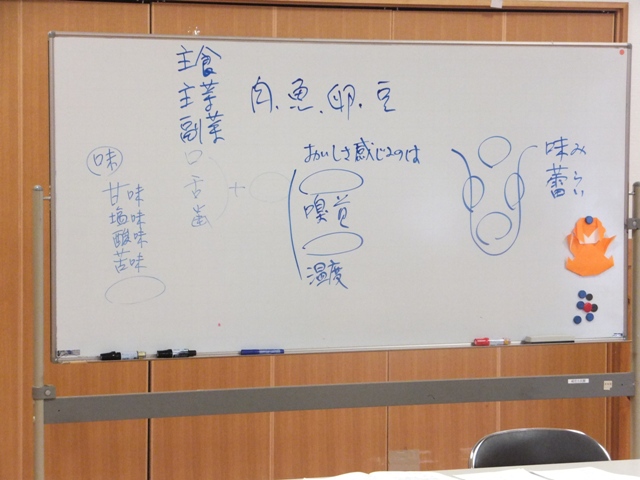 主食
主菜
副菜
肉、魚、卵、豆
味
甘味
塩味
酸味
苦味
口
舌
歯
+
おいしさ感じるのは
嗅覚
温度
味み
蕾らい